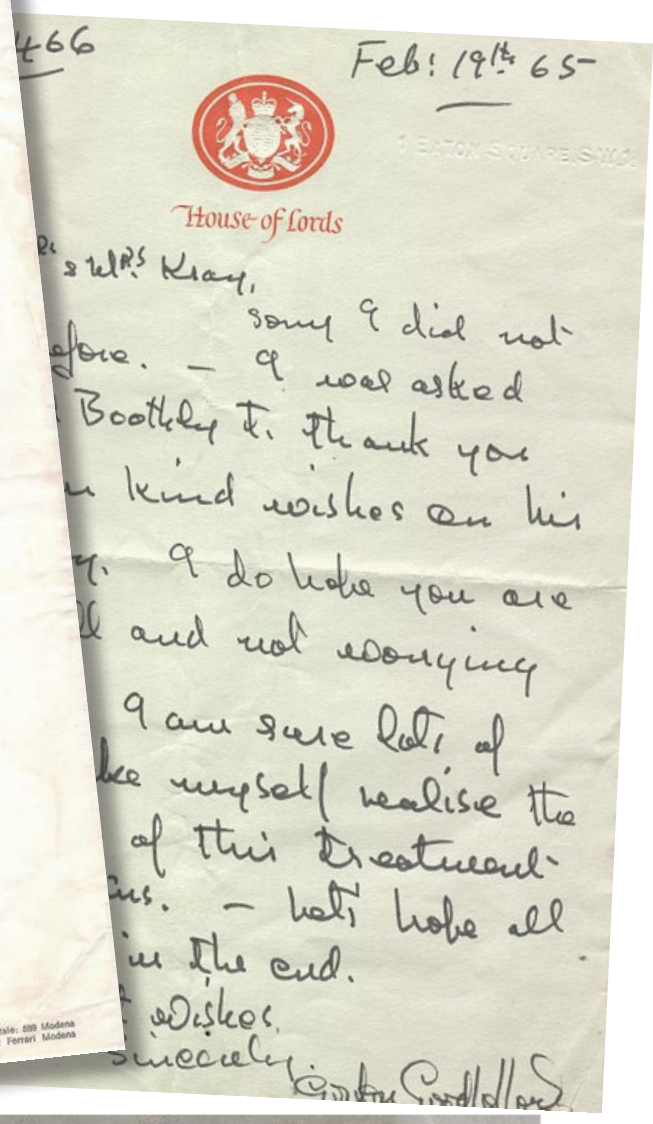 466
Feb: 19th 65
1 EATON SQUARE, S.W.1.
House of Lords
& Mrs Kray,
Sorry I did not
efore. – I was asked
Boothby to thank you
kind wishes on his
y. I do hope you are
ll and not worrying
I am sure lots of
ke myself realise the
of this treatment
– lets hope all
in the end.
t wishes.
Sincerely,
Gordon
ale: 589 Modena
Ferrari Modena